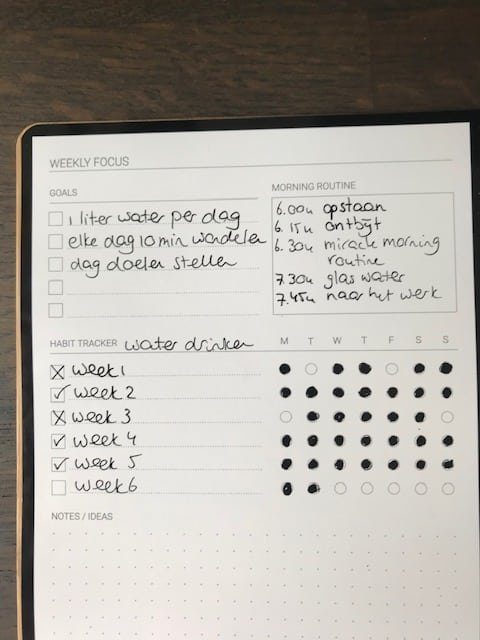 WEEKLY FOCUS
GOALS
1 liter water per dag
elke dag 10 min wandelen
dag doelen stellen
MORNING ROUTINE
6.00u opstaan
6.15u ontbijt
6.30u miracle morning
routine
7.30u glas water
7.45u naar het werk
HABIT TRACKER water drinken
M T W T F S S
week 1
week 2
week 3
week 4
week 5
week 6
NOTES / IDEAS